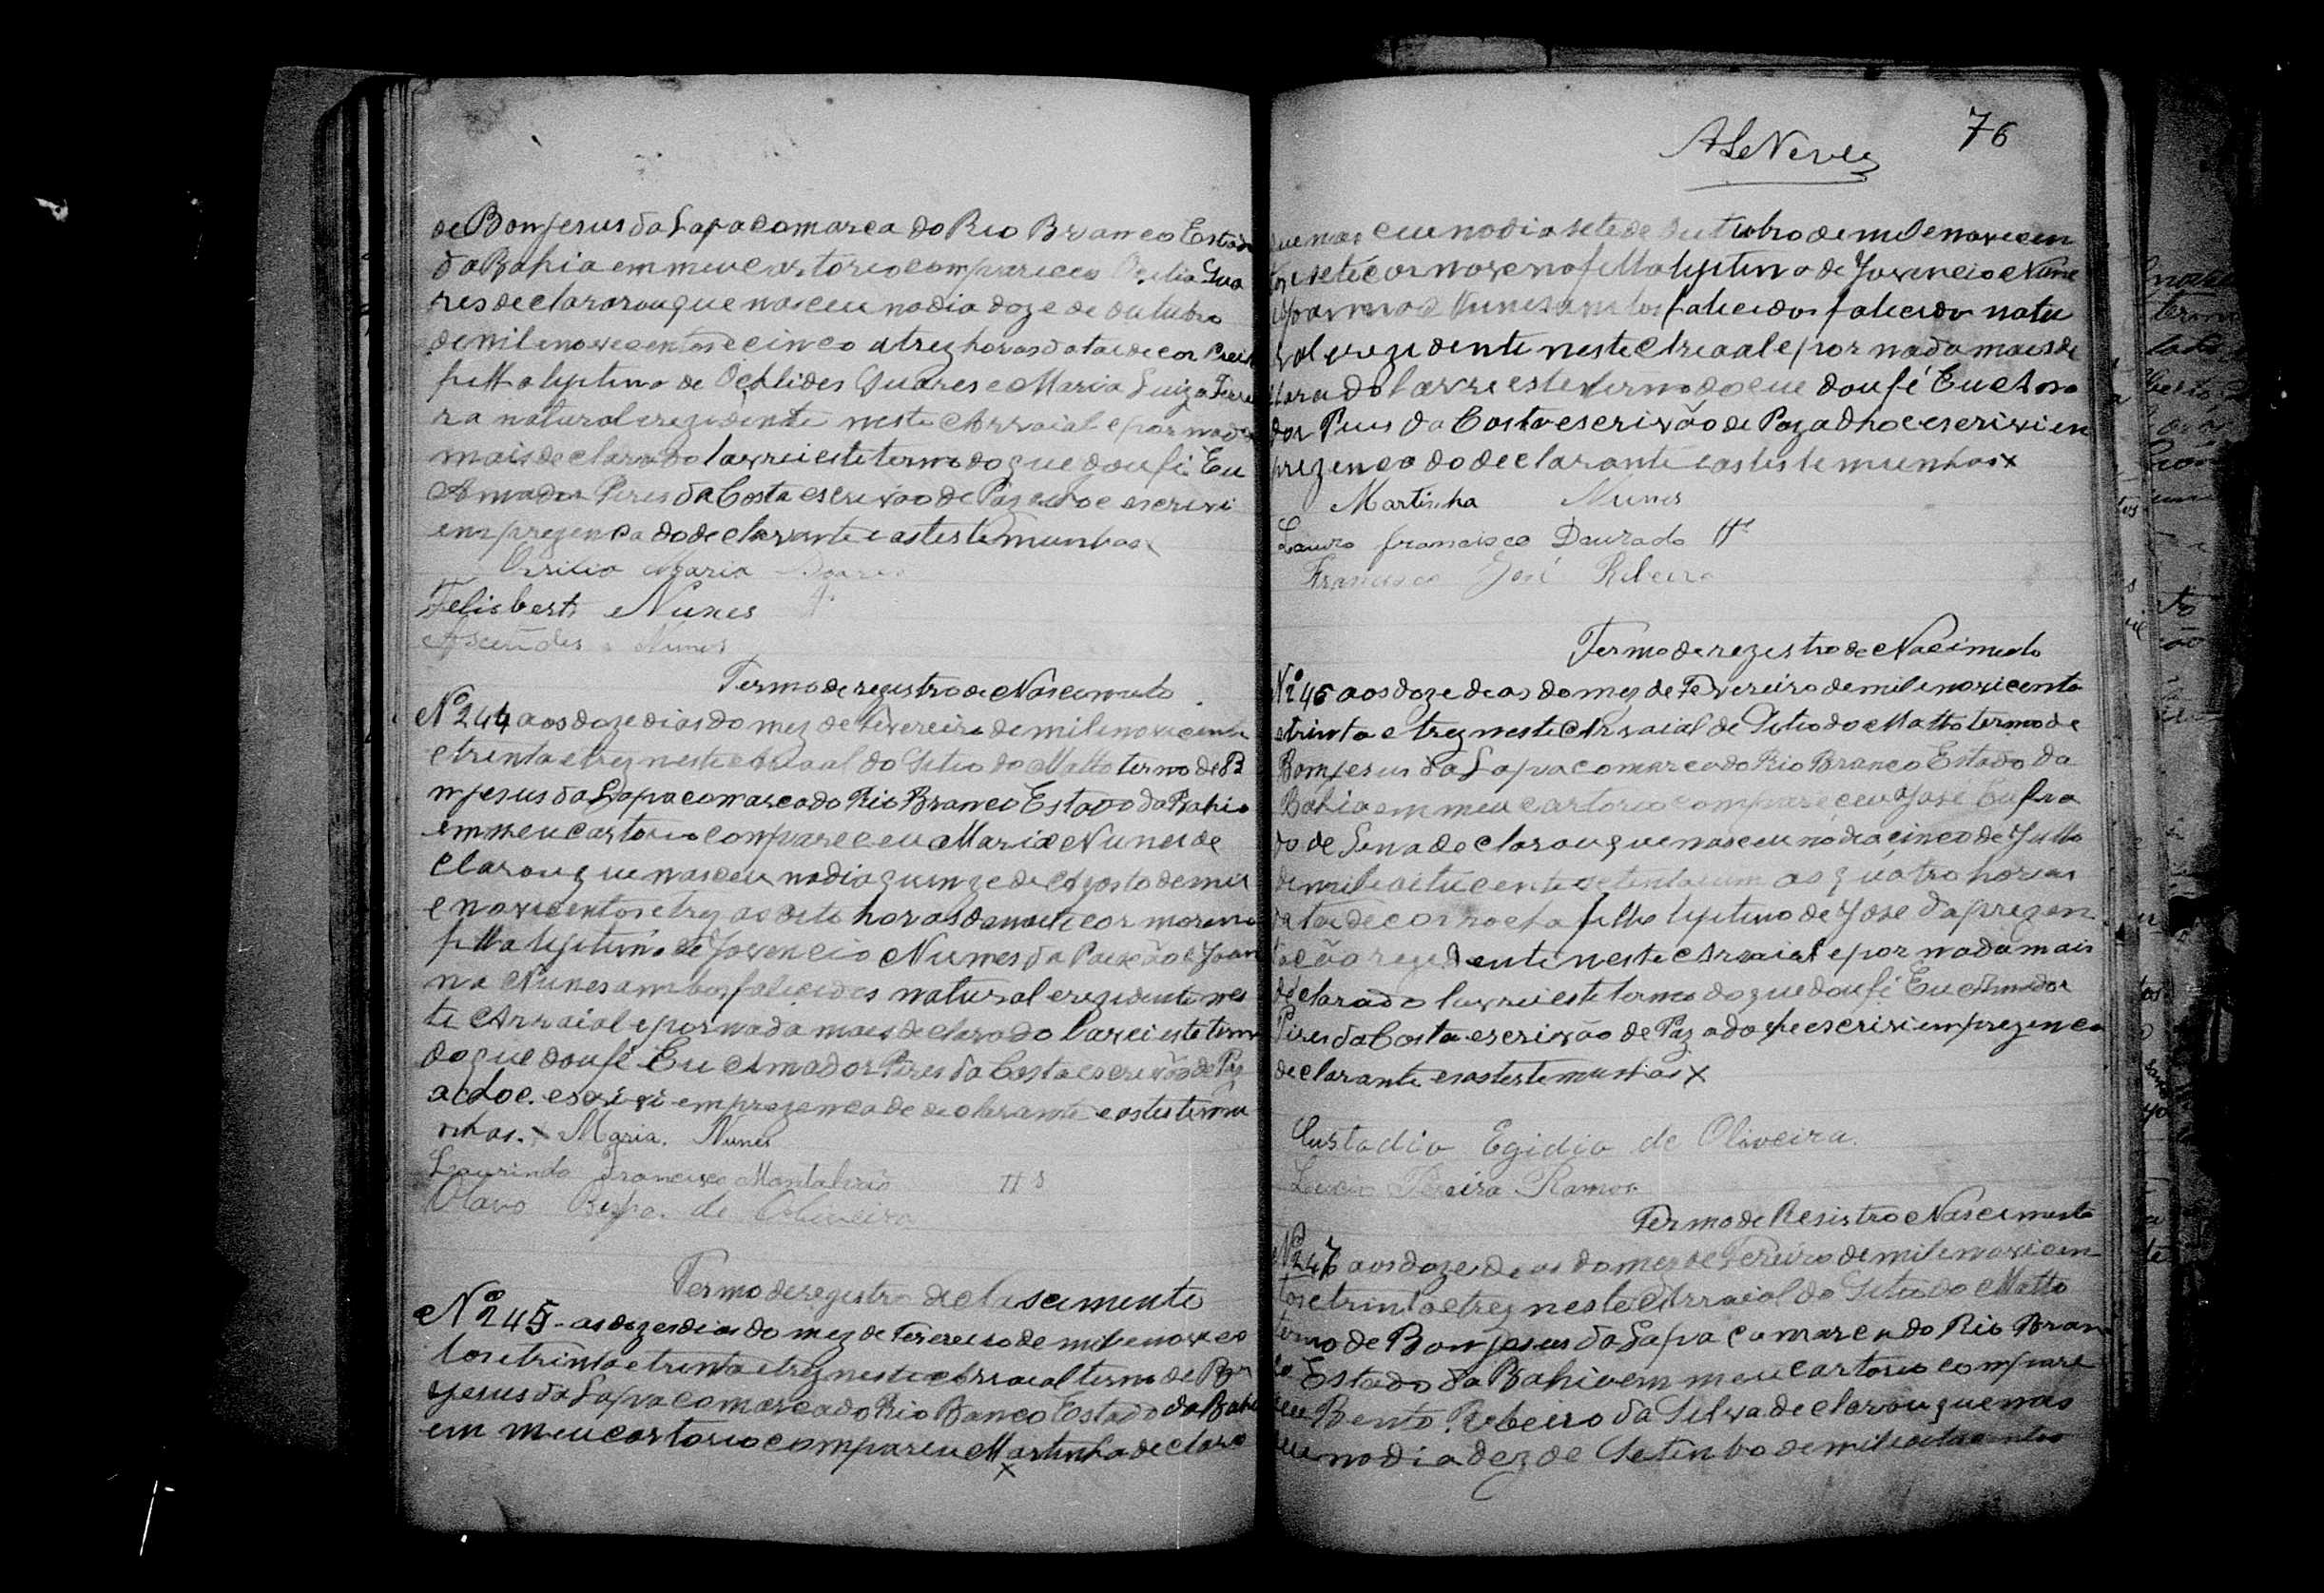 de Bom jesus da Lapa comarca do Rio Branco Estado
da Bahia em meu cartorio compareceo
res declararou que nasceu no dia doze de outubro
de mil enovecentos e cinco a trez horas da tarde cor
filha lijitima de Soares e Maria Luiza
ra natural erezidente neste Arraial e por nada
mais declarado lavrei este termo do que dou fé Eu
Amador Pires da Costa escrivão de Paz escrivi
em prezenca do declarante e as testemunhas
Maria
Felisberto Nunes
Nunes
Termo de registro de Nascimento
Nº 244 aos doze dias do mez de Fevereiro de mil enovecento
e trinta e trez neste Arraial do Sitio do Matto termo de B
m jesus da Lapa comarca do Rio Branco Estado da Bahia
em meu cartorio compareceu Maria Nunes de
clarou que nasceu no dia quinze de Agosto de mil
e novecentos e trez as oito horas da noite cor morena
filha lijitima de Jovencio Nunes da Paixão e Joan
na Nunes ambos falicidos natural erezidente nes
te Arraial e por nada mais declarado lavrei este term
do que dou fé Eu Amador Pires da Costa escrivão de Paz
adoc. escrivi em prezenca de declarante e as testemu
nhas. x Maria. Nunes
Laurindo Francisco TTs
Olavo de Oliveira
Termo de registro de Nascimento
Nº 245 - as doze dias do mez de Fevereiro de mil enovece
tos e trinta e trinta e trez neste Arraial termo de Bom
jesus da Lapa comarca do Rio Banco Estado da Bahi
em meu cartorio compareu Martinha de claro
x
76
ALeNeves
que nas ceu no dia sete de outubro de mil enovecen
tos e sete cor morena filha lijitima de Jovencio Nune
e Joanna Nunes ambos falicidos falicidos natu
ral erezidente neste Arraal e por nada mais de
clarado lavrei este termo do cue dou fé Eu Ama
dor Pires da Costa escrivão de Paz adhoc escrivi en
prezenca do declarante e as testemunhas x
Martinha Nunes
Lauro francisco Dourado TTs
Francisco José Ribeiro
Termo de rezistro de Nacimento
Nº 246 aos doze dias do mez de Fevereiro de mil enovicento
e trinta e trez neste Arraial de Sitio do Matto termo de
Bom jesus da Lapa comarca do Rio Branco Estado da
Bahia em meu cartorio compareceu José
do de Sena declarou que nasceu no dia cinco de Julho
de mil e oitucentos e as quatro horas
da tarde cor filho lijitimo de José da prezen
tacão rezidente neste Arraial e por nada mais
declarado lavrei este termo do que dou fé Eu Amador
Pires da Costa escrivão de Paz escrivi em prezenca
declarante e as testemunhas x
Custodio Egidio de Oliveira.
Pereira Ramos
Termo de Resistro Nascimento
Nº 247 aos doze dias do mez de Fereiro de mil enovicen
tos e trinta e trez neste Arraial do Sitio do Matto
termo de Bom jesus da Lapa Comarca do Rio Bran
co Estado da Bahia em meu cartorio compare
ceu Bento Ribeiro da Silva declarou que nas
ceu no dia dez de Setenbo de mil e oitucentos